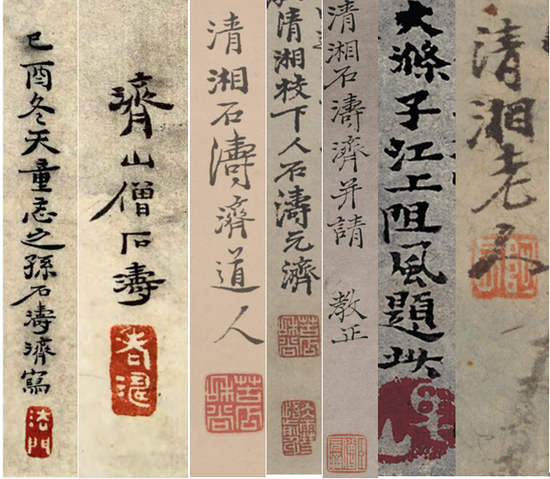 己酉冬天童忞之孫石濤濟寫
法門
濟山僧石濤
清湘石濤濟道人
清湘枝下人石濤元濟
清湘石濤濟并請 教正
大滌子江上阻風題此
清湘老人